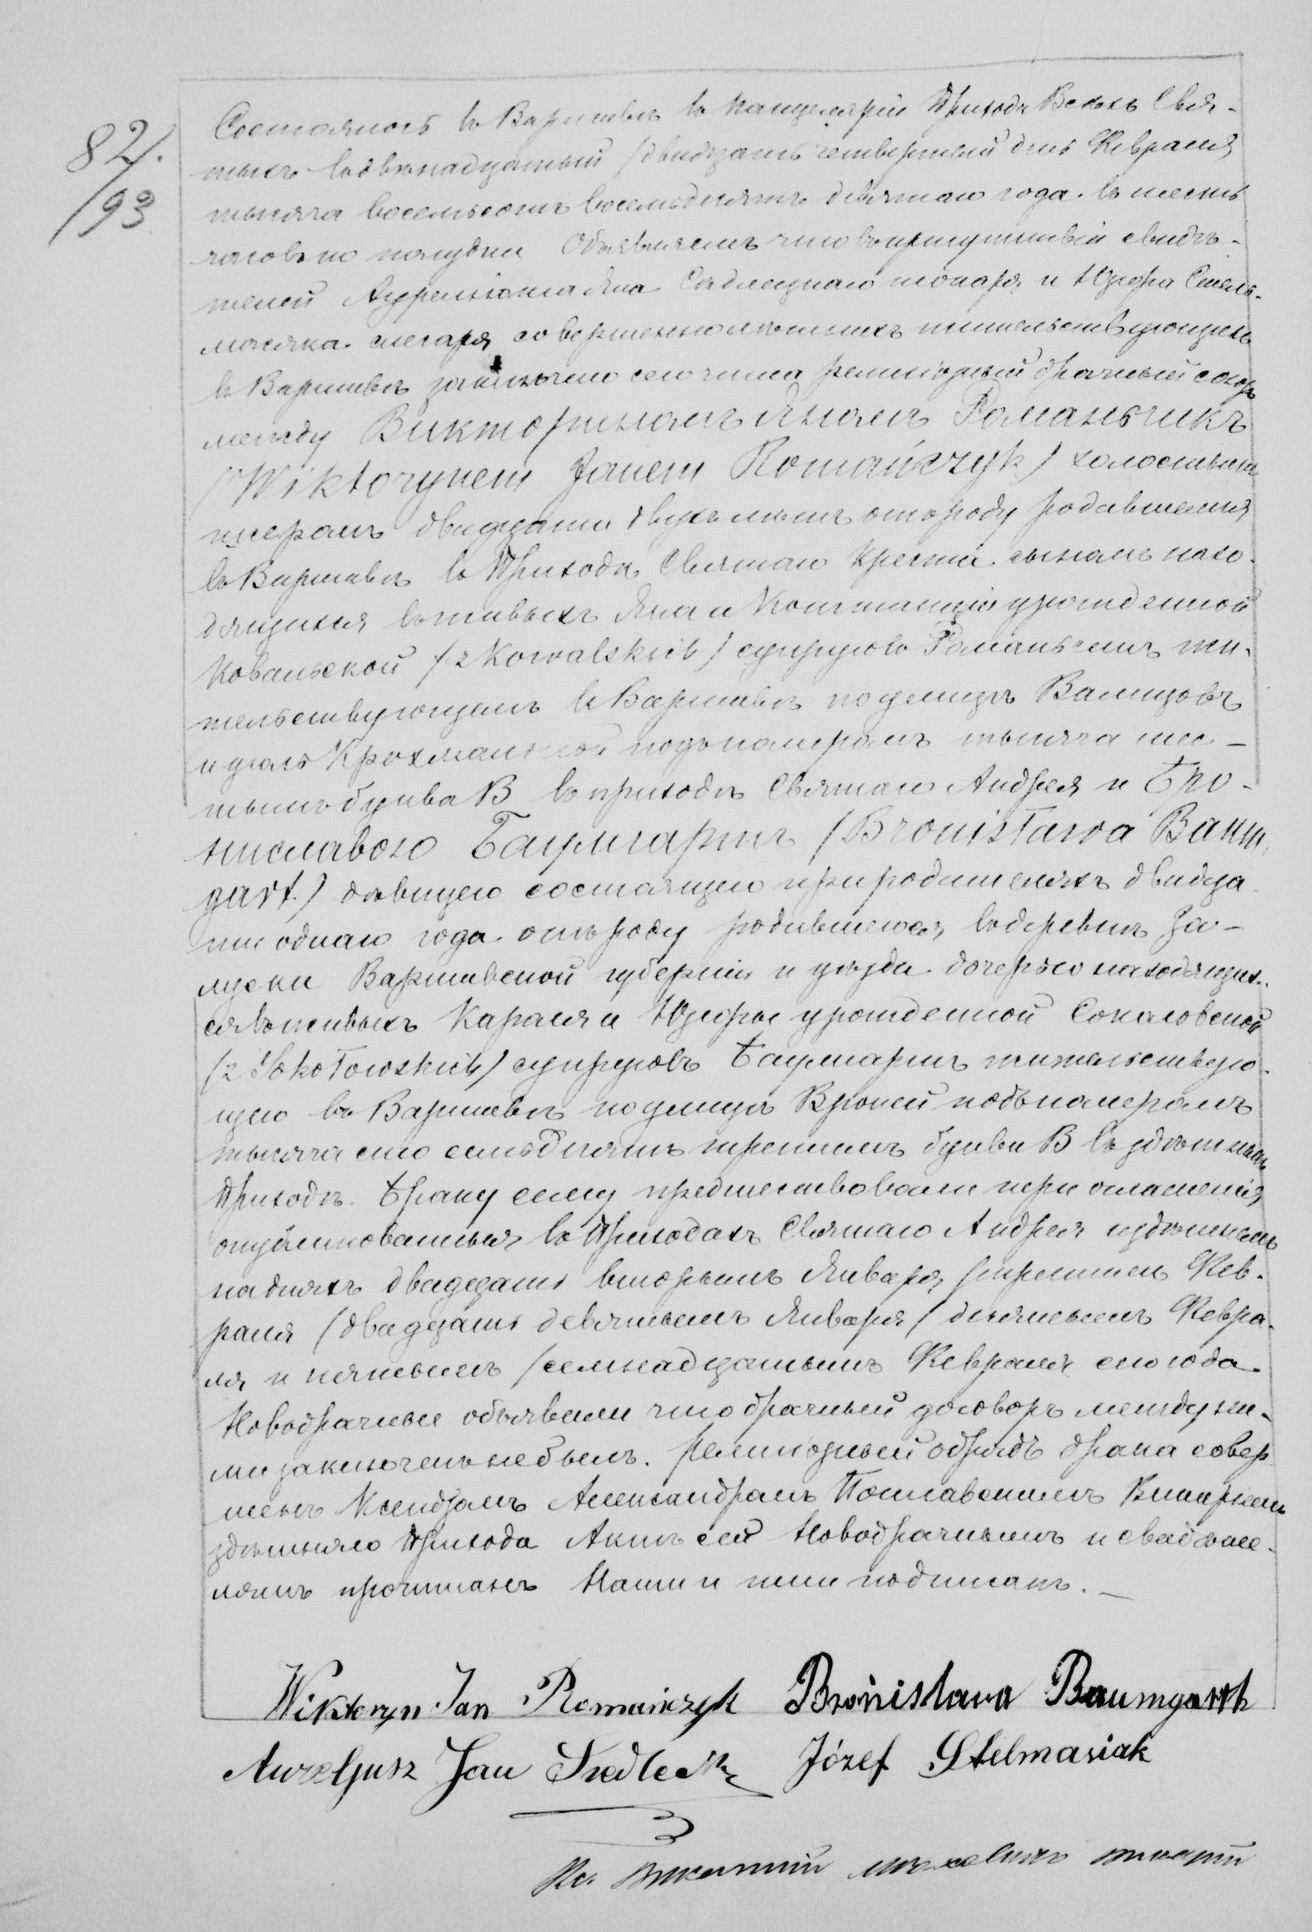 82/.
193
Состоялось въ Варшавѣ въ Канцеляріи Прихода Всѣхъ Свя-
тыхъ въ двѣнадцатый /двадцать четвертый день Февраля
тысяча восемьсотъ восемьдесятъ девятаго года въ шесть
часовъ по полудни Объявляемъ что въ присутствіи свидѣ-
телей Аурелюша Яна Сѣдлецкаго токаря и Юзефа Стель-
масяка слесаря совершеннолѣтнихъ жительствующихъ
въ Варшавѣ заключено сего числа религіозный брачный союзъ
между Викториномъ Яномъ Романьчикъ
/Wiktorynem Janem Romańczyk/ холостымъ
двадцати двухъ лѣтъ отъ роду родившемся
въ Варшавѣ въ Приходѣ Святаго Креста сыномъ нахо-
дящихся въ живыхъ Яна и Констанціи урожденной
Ковальской /z Kowalskich/ супруговъ жи-
тельствующемъ въ Варшавѣ по улицѣ Валицовъ
и уголъ Крохмальной подъ номеромъ тысяча
буква В въ приходѣ Святаго Андрея и Бро-
ниславою Баумгартъ /Bronisława Baum
gart/ дѣвицею состоящею при родителяхъ двадца
ти одного года отъ роду родившеюся въ деревнѣ За-
луски Варшавской губерніи и уѣзда дочерью находящих-
ся въ живыхъ Кароля и Юзефы урожденной Соколовской
/z Sokołowskich/ супруговъ Баумгартъ жительствую-
щею въ Варшавѣ по улицѣ Вроней подъ номеромъ
тысяча сто семьдесятъ третьимъ буква В въ здѣшнемъ
Приходѣ. Браку сему предшествовали три оглашенія
опубликованныя въ Приходахъ Святаго Андрея и здѣшнемъ
на дняхъ двадцать второмъ Января /третьемъ Фев-
раля /двадцать девятомъ Января / десятомъ Февра-
ля и пятомъ /семнадцатомъ Февраля сего года.
Новобрачные объявили что брачный договоръ между ни-
ми заключенъ не былъ. Религіозный обрядъ брака совер
шенъ Ксендзомъ Александромъ Викаріемъ
здѣшняго Прихода Актъ сей Новобрачнымъ и свидѣте-
лямъ прочитанъ Нами и ими подписанъ. —
Wiktoryn Jan Romańczyk Bronisława Baumgarth
Aureljusz Jan Siedlecki Józef Stelmasiak
Кс.